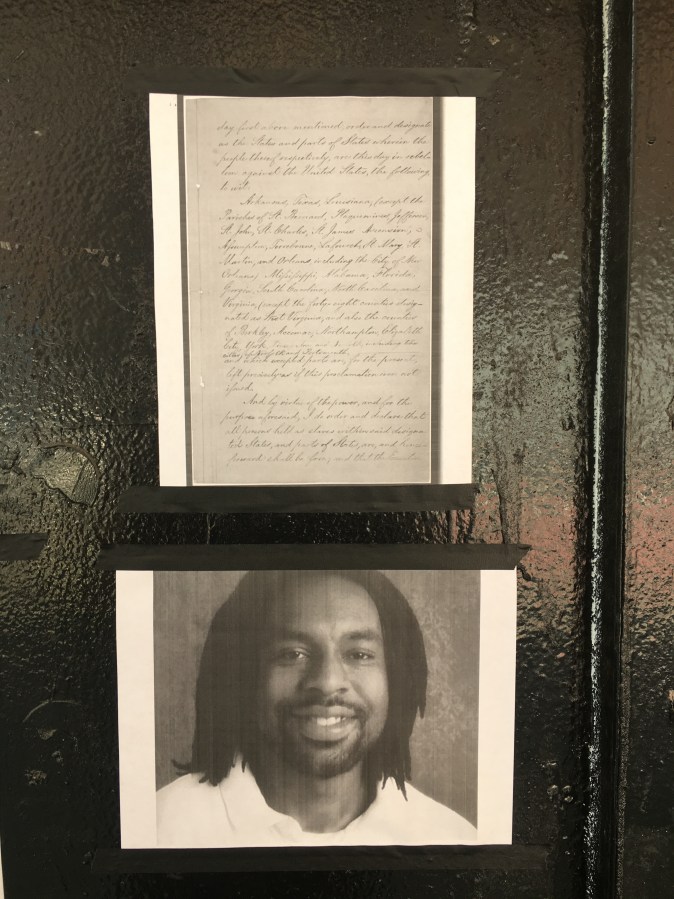 day first above mentioned, order and designate
as the States and parts of States wherein the
people thereof respectively, are this day in rebel-
lion against the United States, the following
to wit:
Arkansas, Texas, Louisiana, (except the
Parishes of St. Bernard, Plaquemines, Jefferson,
St. John, St. Charles, St. James, Ascension,
Assumption, Terrebonne, Lafourche, St. Mary, St.
Martin, and Orleans, including the City of New
Orleans) Mississippi, Alabama, Florida,
Georgia, South Carolina, North Carolina, and
Virginia, (except the forty-eight counties desig-
nated as West Virginia, and also the counties
of Berkley, Accomac, Northampton, Elizabeth
City, York, including the
cities of Norfolk and Portsmouth
and which excepted parts are, for the present,
left precisely as if this proclamation were not
issued.
And by virtue of the power, and for the
purpose aforesaid, I do order and declare that
all persons held as slaves within said designa-
ted States, and parts of States, are, and hence-
forward shall be free; and that the Executive